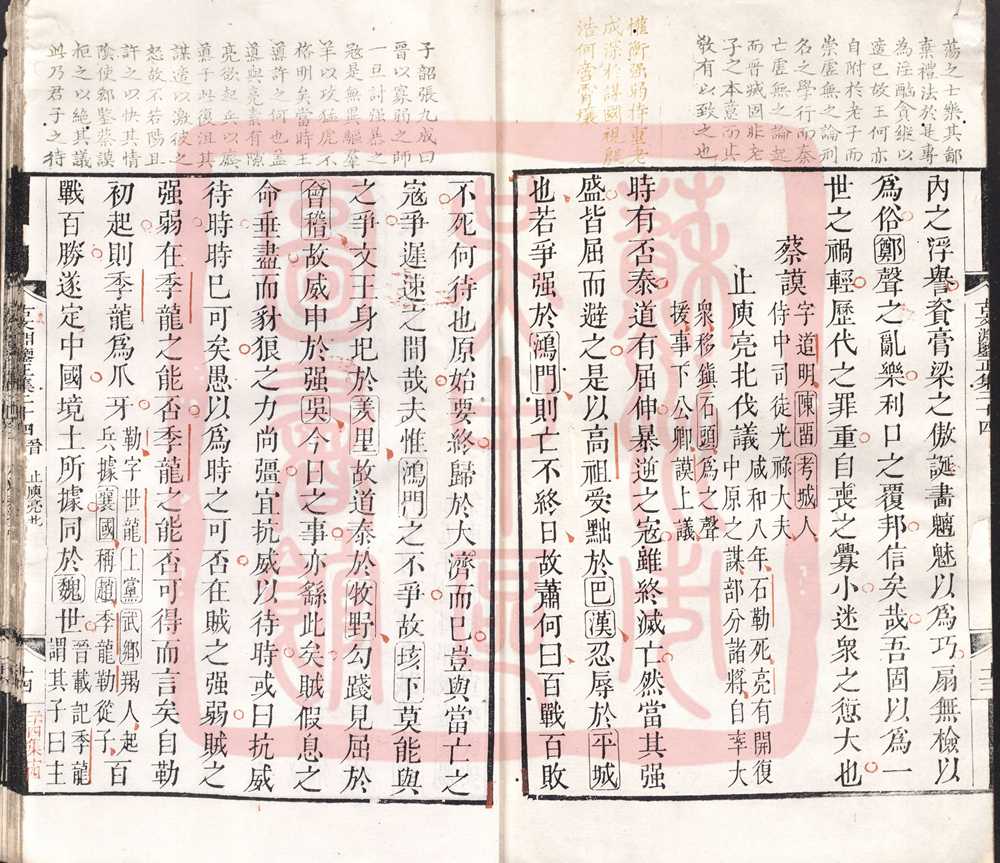 蕩之士樂其鄙
棄禮法於是專
為淫酗貪縱以
遂已故王何亦
自附於老子而
崇虛無之論刑
名之學行而秦
亡虛無之論起
而晉戚固非老
子之本意而其
敎有以致之也
權衡强弱持重老
成深於謀國祖殷
浩何啻霄壤
內之浮譽資膏粱之傲誕畵魑魅以爲巧扇無檢以
爲俗鄭聲之亂樂利口之覆邦信矣哉吾固以爲一
世之禍輕歷代之罪重自喪之釁小迷衆之愆大也
蔡謨字道明陳畱考城人
侍中司徒光祿大夫
止庾亮北伐議咸和八年石勒死亮有開復
中原之謀部分諸將自率大
衆移鎮石頭爲之聲
援事下公卿謨上議
時有否泰道有屈伸暴逆之寇雖終滅亡然當其强
盛皆屈而避之是以高祖受黜於巴漢忍辱於平城
也若爭强於鴻門則亡不終日故蕭何曰百戰百敗
子韶張九成曰
晉以寡弱之師
一旦討强悲之
寇是無異驅羣
羊以攻猛虎不
格明矣當時王
導許之何也盖
導與亮素有隙
亮欲起兵以廢
導于此復沮其
謀遂以激彼之
怒故不若陽且
許之以快其情
陰使郗鑒蔡謨
拒之以絕其議
此乃君子之待
不死何待也原始要終歸於大濟而已豈與當亡之
寇爭遲速之間哉夫惟鴻門之不爭故垓下莫能與
之爭文王身圮於羑里故道泰於牧野勾踐見屈於
會稽故威申於强吳今日之事亦繇此矣賊假息之
命垂盡而豺狼之力尚彊宜抗威以待時或曰抗威
待時時已可矣愚以爲時之可否在賊之强弱賊之
强弱在季龍之能否季龍之能否可得而言矣自勒
初起則季龍爲爪牙勒字世龍上黨武鄉羯人起
兵據襄國稱趙季龍勒從子百
戰百勝遂定中國境土所據同於魏世晉載記季龍
謂其子曰主
古文淵鑒正集
十四
晉
止庾亮北